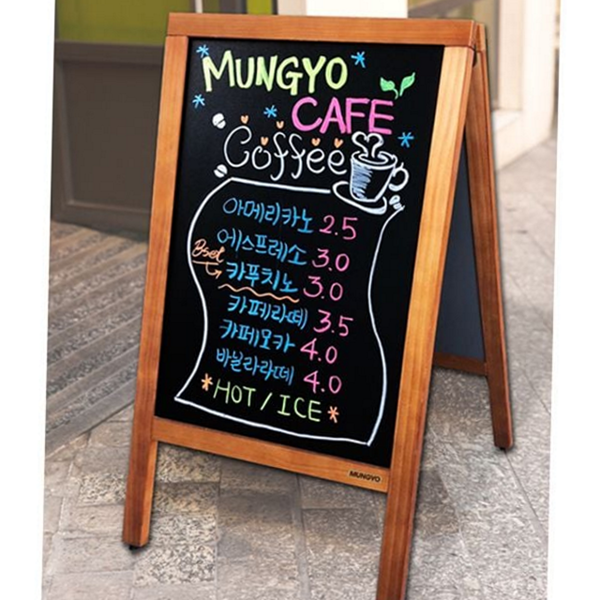 MUNGYO
CAFE
Coffee
아메리카노 2.5
에스프레소 3.0
Bset
카푸치노 3.0
카페라떼 3.5
카페모카 4.0
바닐라라떼 4.0
*HOT / ICE*
MUNGYO